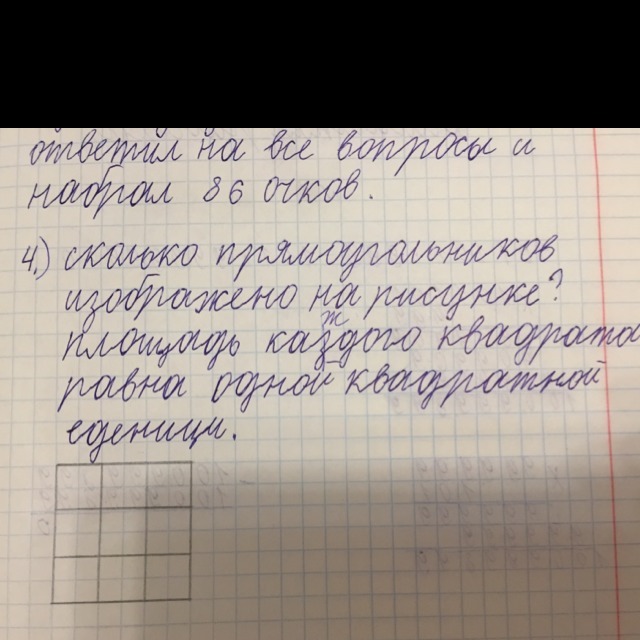 ответил на все вопросы и
набрал 86 очков.
4.) сколько прямоугольников
изображено на рисунке?
площадь каждого квадрата
равна одной квадратной
еденици.